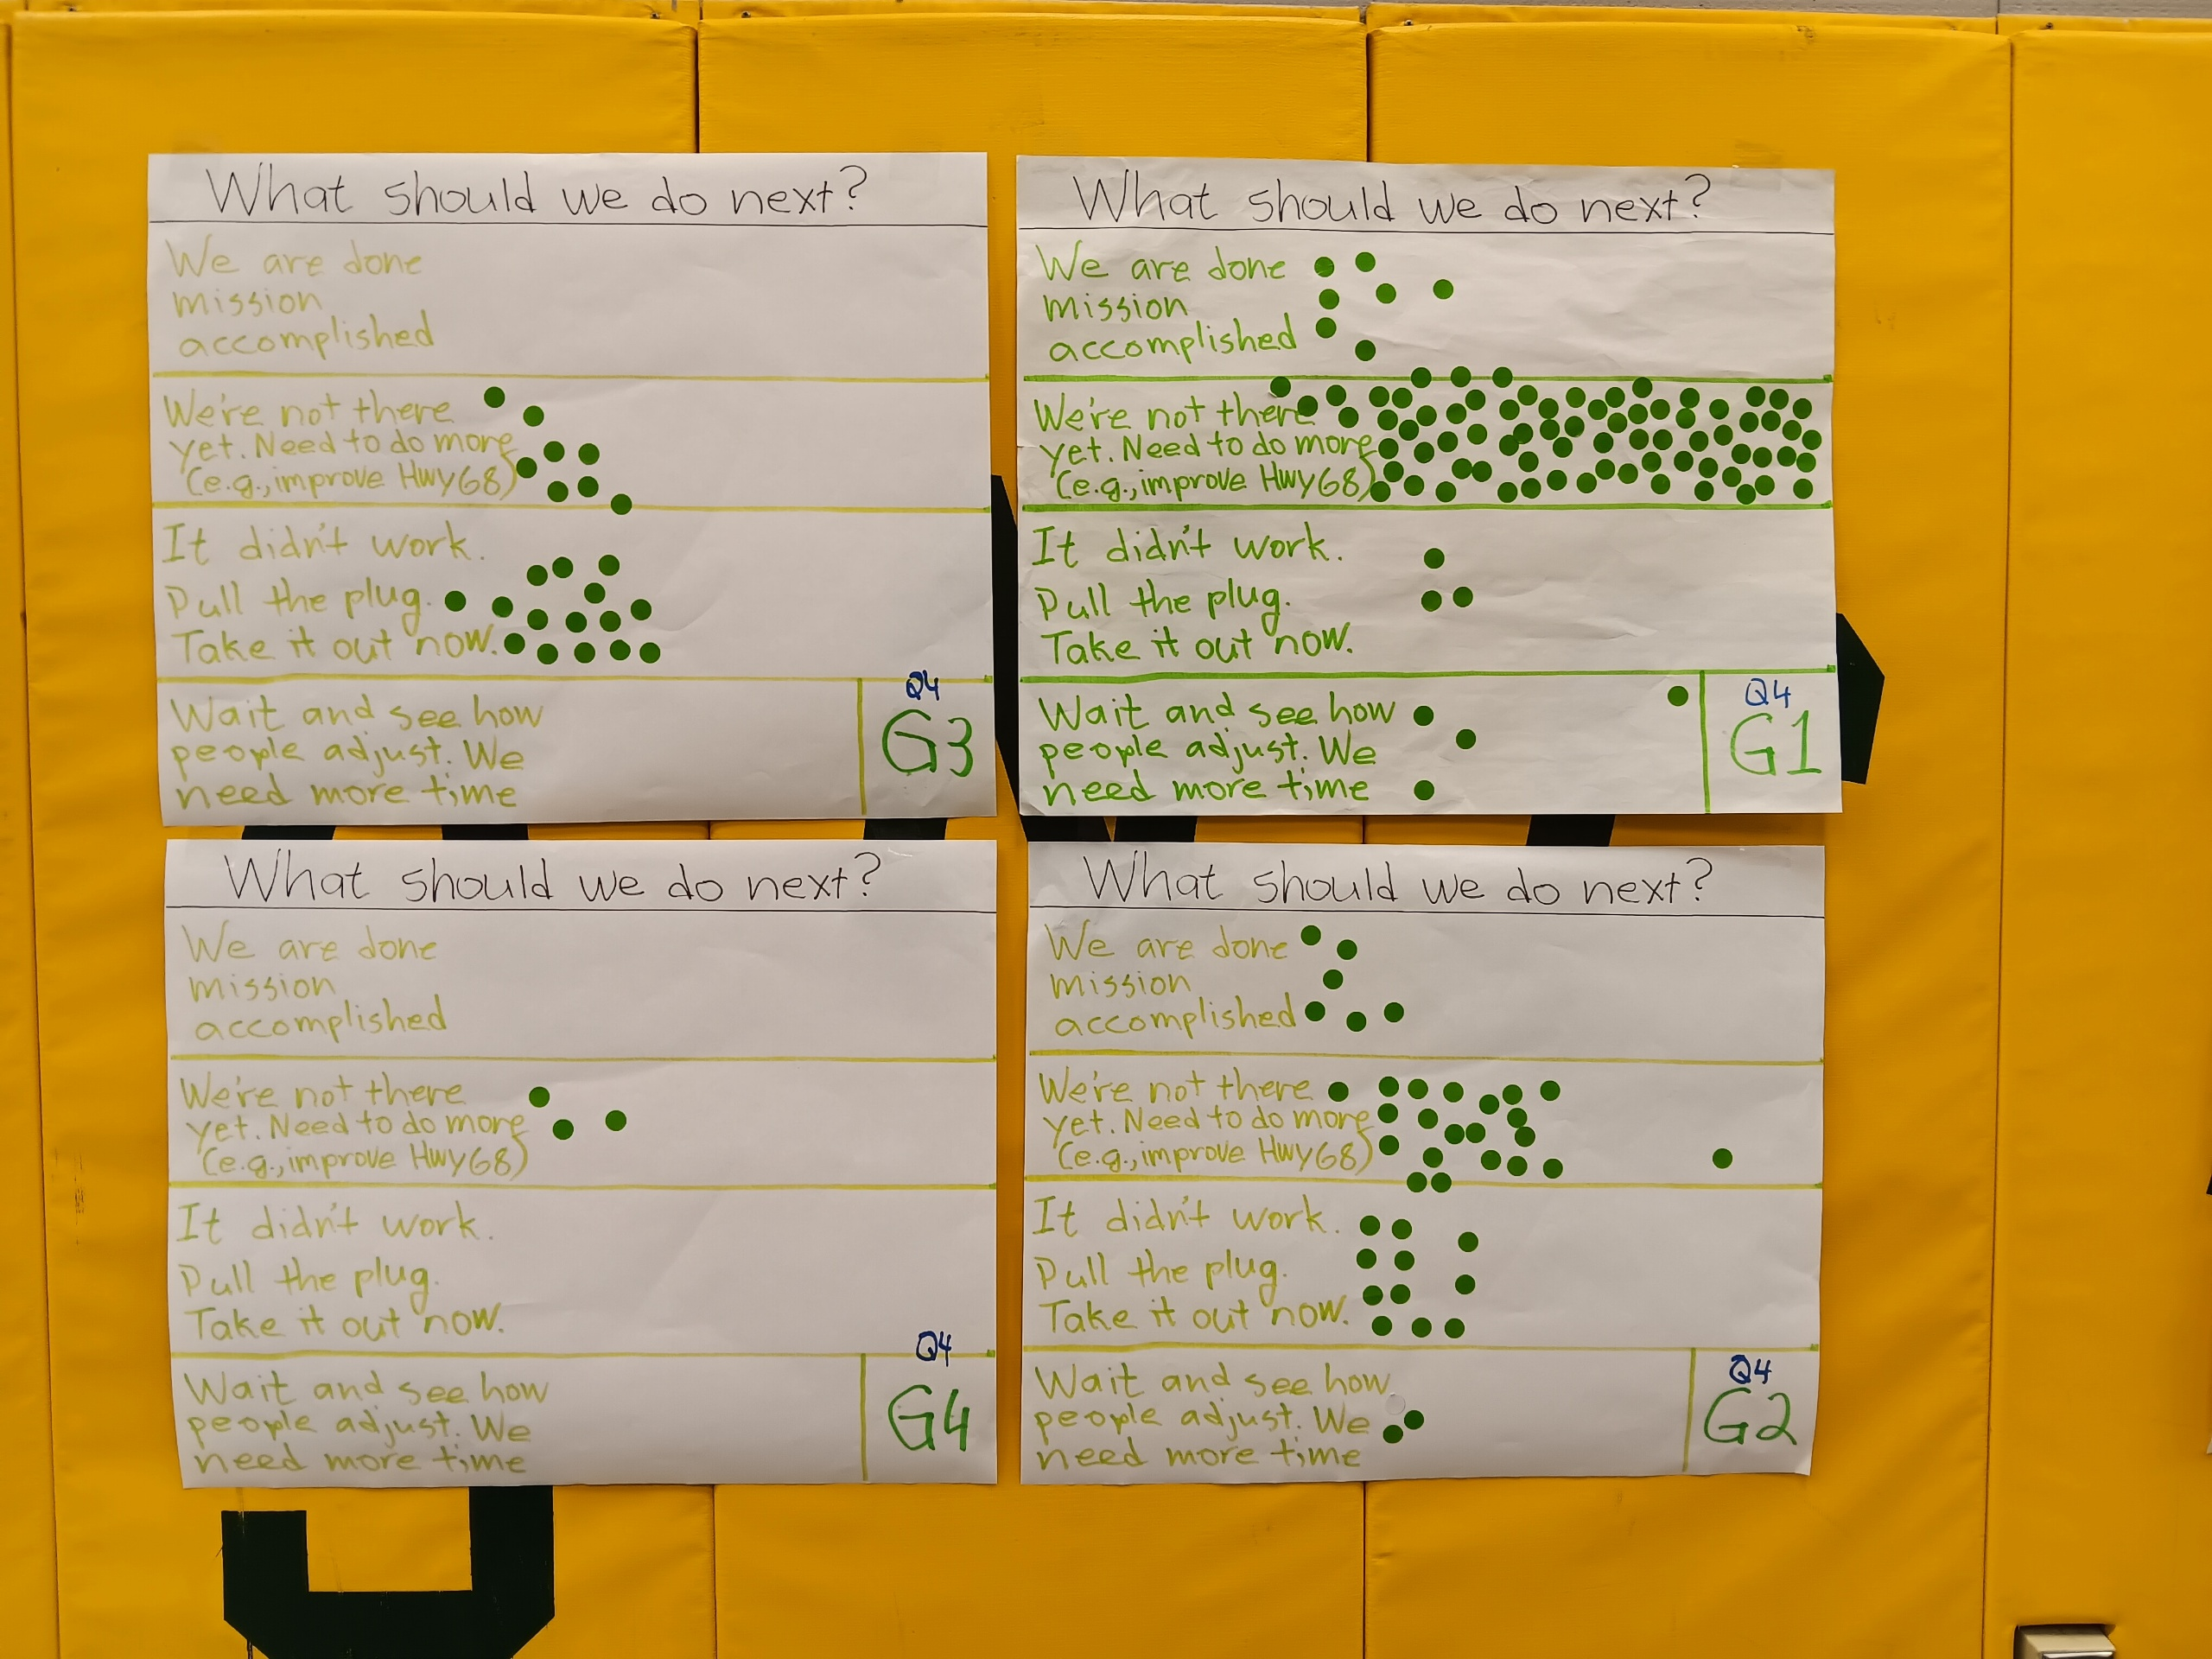 What should we do next?
We are done
mission
accomplished
We're not there
yet. Need to do more
(e.g., improve Hwy68)
It didn't work.
Pull the plug.
Take it out now.
Wait and see how
people adjust. We
need more time
Q4
G3
What should we do next?
We are done
mission
accomplished
We're not there
yet. Need to do more
(e.g., improve Hwy68)
It didn't work.
Pull the plug.
Take it out now.
Wait and see how
people adjust. We
need more time
Q4
G1
What should we do next?
We are done
mission
accomplished
We're not there
yet. Need to do more
(e.g., improve Hwy68)
It didn't work.
Pull the plug.
Take it out now.
Wait and see how
people adjust. We
need more time
Q4
G4
What should we do next?
We are done
mission
accomplished
We're not there
yet. Need to do more
(e.g., improve Hwy68)
It didn't work.
Pull the plug.
Take it out now.
Wait and see how
people adjust. We
need more time
Q4
G2